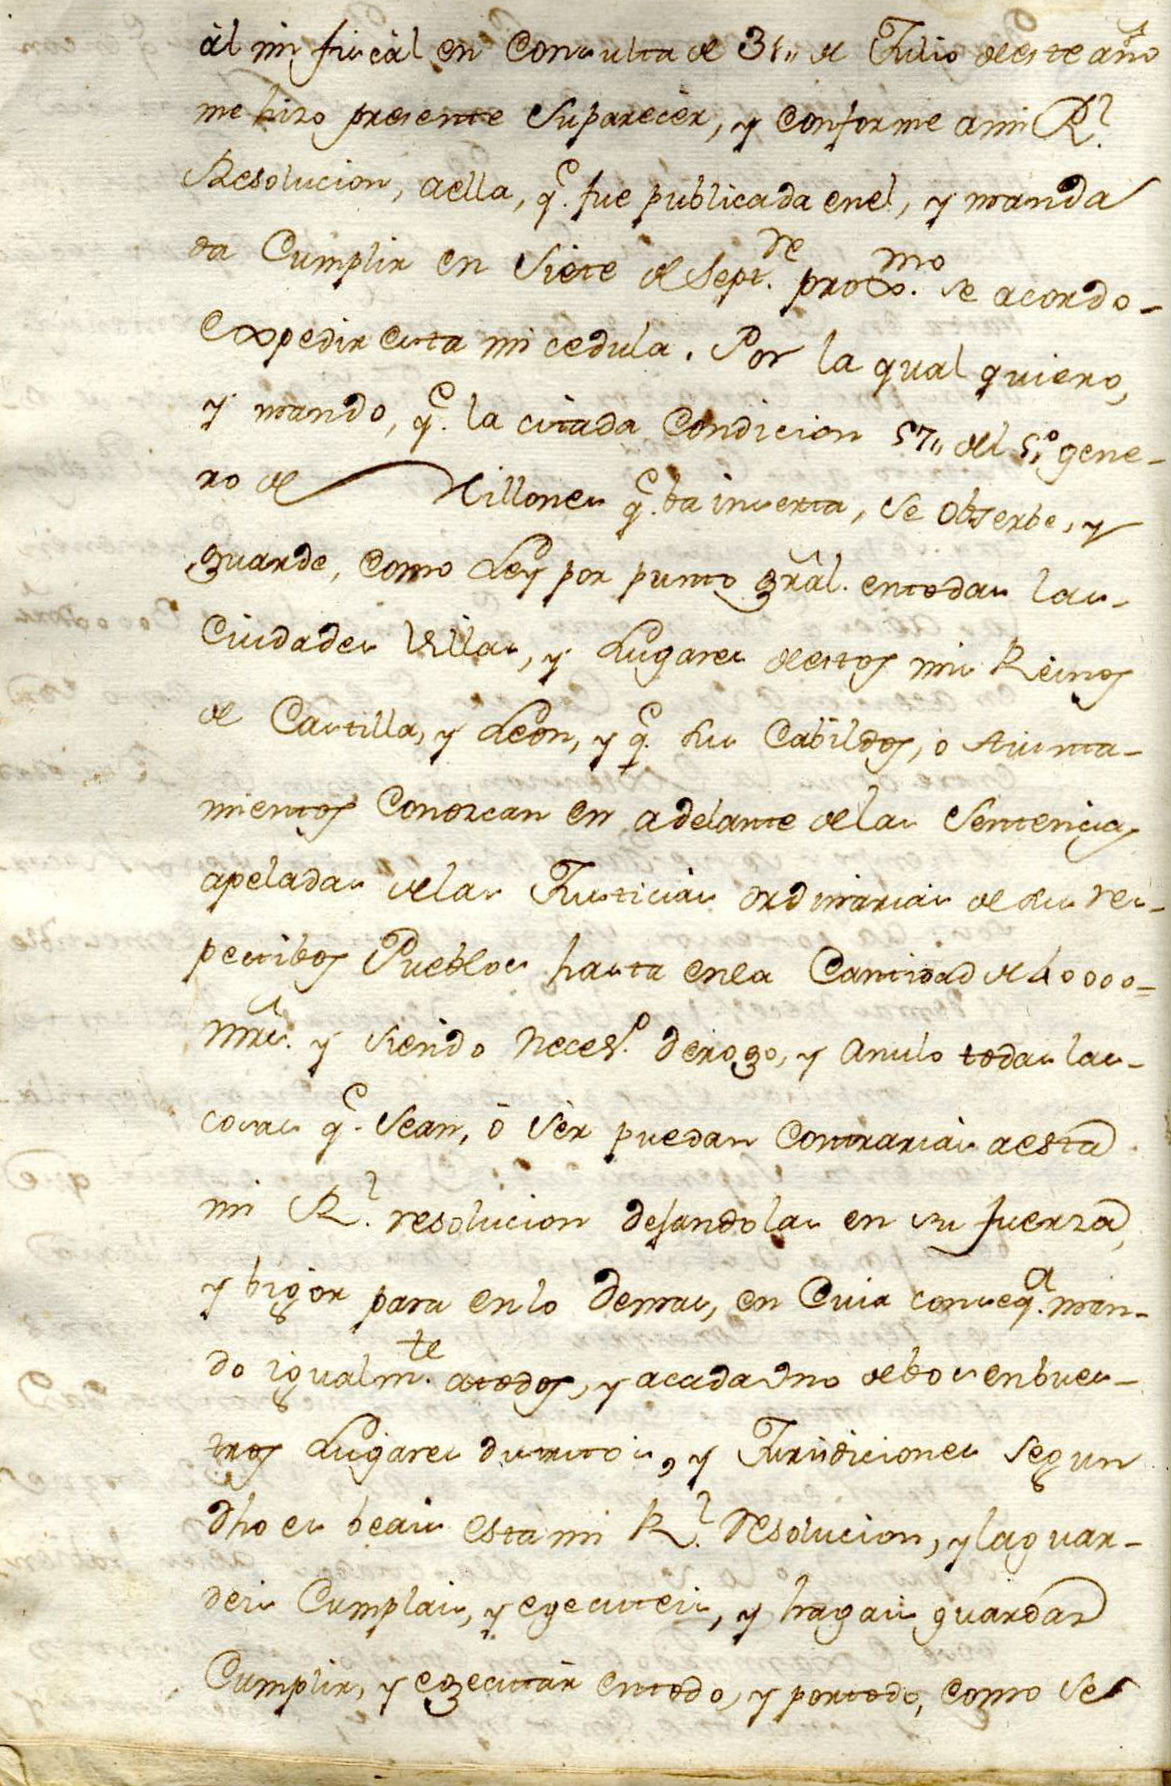 àl mi fiscàl en Consulta de 31,, de Julio deeste año
me hizo presente suparecèr, y conforme ami Rl.
Resolucion, aella, qe. fue publicada enel, y manda
da Cumplir en siete de Septre. proxmo. se acordo-
expedir esta mi cedula. Por la qual quiero,
y mando, qe. la citada Condicion 57,, del 5,,o gene-
ro de Millones qe. ba inserta, se obserbe, y
guarde, como Ley por punto grâl. entodas las-
Ciudades Villas, y Lugares deestos mis Reinos
de Castilla, y Leon, y qe. sus Cabildos, o Aiunta-
mientos Conozcan en adelante delas Sentencias
apeladas delas Justicias ordinarias de sus res-
pectibos Pueblos hasta enla Cantidad de 40000=
mrs. y siendo neceso. derogo, y anulo todas las-
cosas qe. sean, ò sèr puedan Contrarias aesta
mi Rl. resolucion dejandolas en su fuerza,
y bigor para enlo demas, en Cuia conseqa. man-
do igualmte. atodos, y acada Vno debos enbues-
tros Lugares distritos, y Jurisdiciones segun
dho es beais esta mi Rl. Resolucion, y laguar-
deis Cumplais, y egecuteis, y hagais guardar
Cumplir, y egecutàr entodo, y portodo, como se